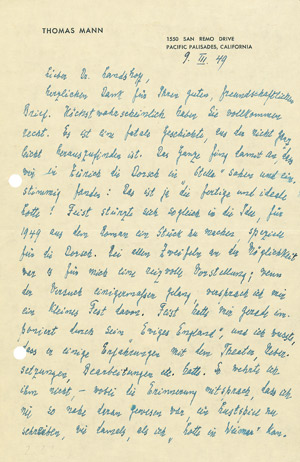 THOMAS MANN
1550 SAN REMO DRIVE
PACIFIC PALISADES, CALIFORNIA
9. III. 49
Lieber Dr. Landshoff,
herzlichen Dank für Ihren guten, freundschaftlichen
Brief. Höchstwahrscheinlich haben Sie vollkommen
recht. Es ist eine fatale Geschichte, aus der nicht ganz
leicht herauszufinden ist. Das Ganze fing damit an, dass
wir in Zürich die Dorsch in "Stella" sahen und ein-
stimmig fanden: Das ist ja die fertige und ideale
Lotte! Feist stürzte sich sogleich in die Idee, für
1949 aus dem Roman ein Stück zu machen speziell
für die Dorsch. Bei allen Zweifeln an der Möglichkeit
war es für mich eine reizvolle Vorstellung; wenn
der Versuch einigermassen gelang, versprach ich mir
ein kleines Fest davon. Feist hatte mir gerade im-
poniert durch sein "Ewiges England", und ich wusste,
dass er einige Erfahrungen mit dem Theater, Ueber-
setzungen, Bearbeitungen etc. hatte. So wehrte ich
ihm nicht, – wobei die Erinnerung mitsprach, dass ich
nie so nahe daran gewesen war, ein Lustspiel zu
schreiben, wie damals, als ich "Lotte in Weimar"